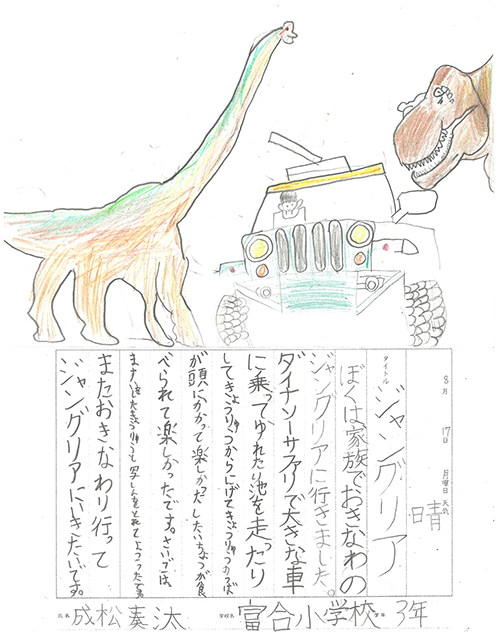 8月 17日 月曜日 天気 晴
タイトル ジャングリア
ぼくは家族でおきなわの
ジャングリアに行きました。
ダイナソーサファリで大きな車
に乗ってゆれたり池を走ったり
してきょうりゅうからにげてきょうりゅうのつば
が頭にかかって楽しかった
べられて楽しかったです。さいごは、
またおきなわり行って
ジャングリアにいきたいです。
氏名 成松奏汰 学校名 富合小学校 学年 3年